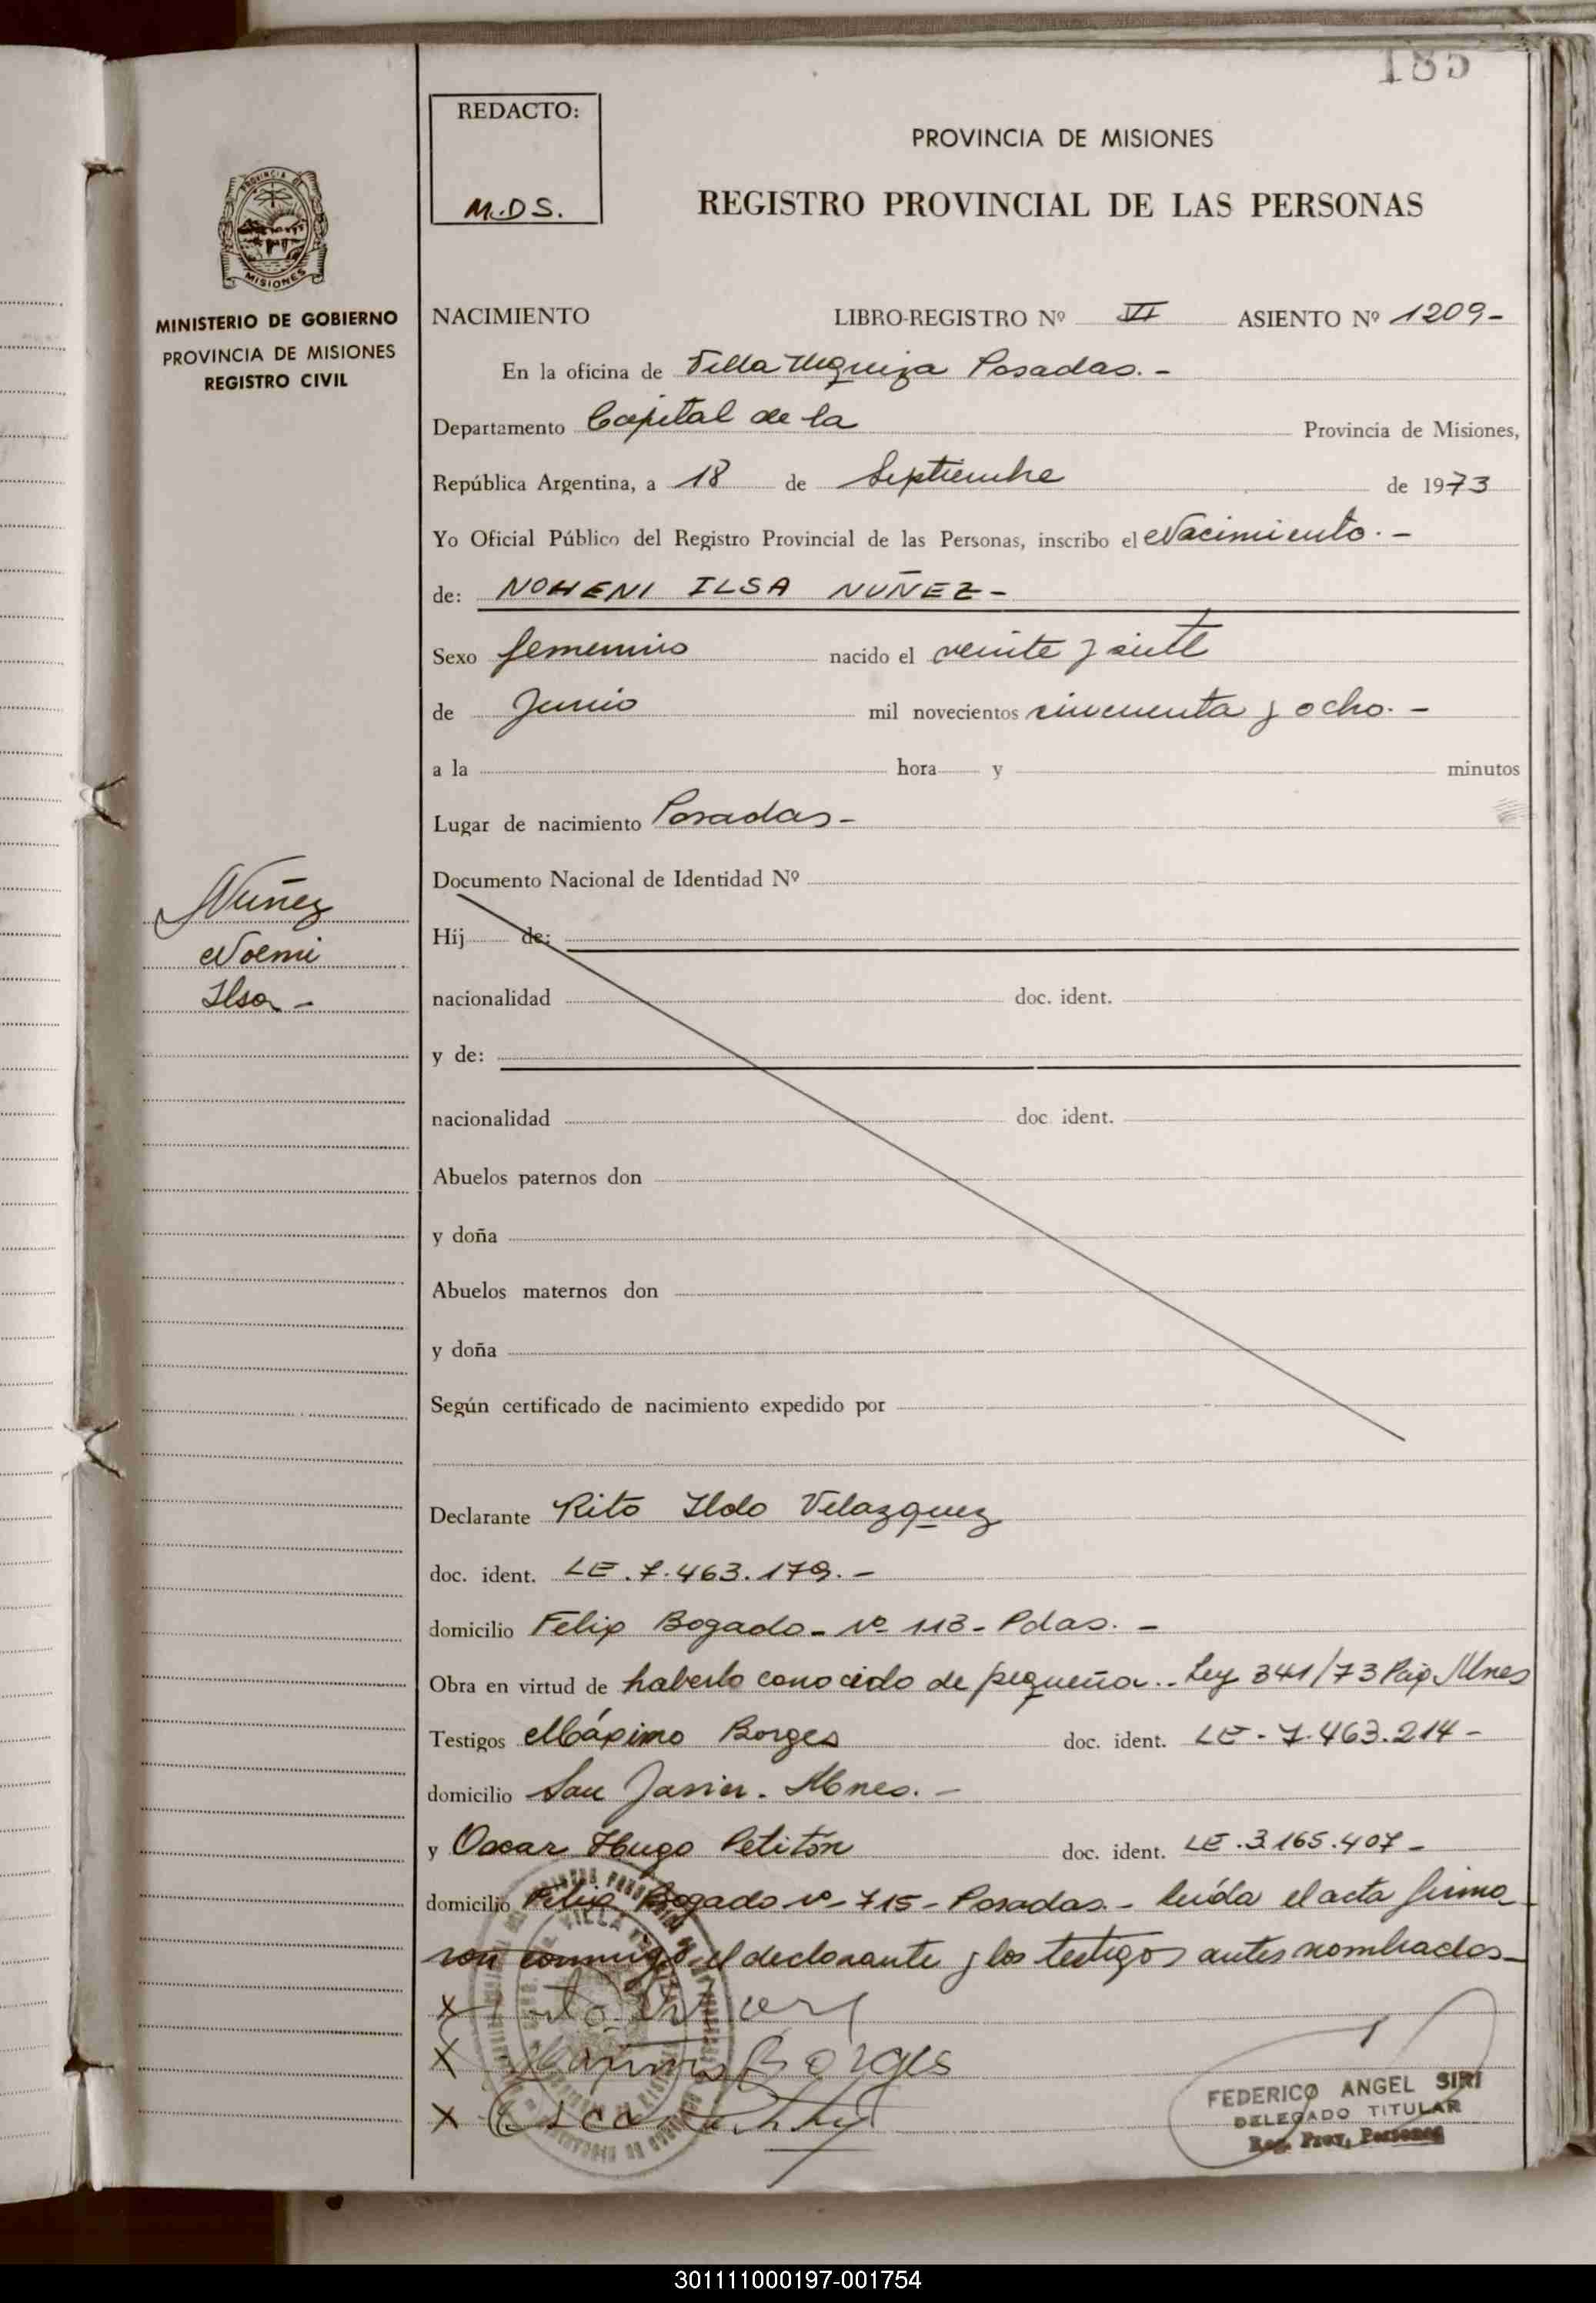 185
REDACTO:
M.D.S.
PROVINCIA DE MISIONES
REGISTRO PROVINCIAL DE LAS PERSONAS
PROVINCIA DE
MISIONES
MINISTERIO DE GOBIERNO
PROVINCIA DE MISIONES
REGISTRO CIVIL
NACIMIENTO LIBRO-REGISTRO Nº VI ASIENTO Nº 1209-
En la oficina de Villa Urquiza Posadas.-
Departamento Capital de la Provincia de Misiones,
República Argentina, a 18 de Septiembre de 1973
Yo Oficial Público del Registro Provincial de las Personas, inscribo el Nacimiento.-
de: NOHENI ILSA NUÑEZ-
Sexo femenino nacido el veinte y siete
de Junio mil novecientos cincuenta y ocho.-
a la hora y minutos
Lugar de nacimiento Posadas-
Documento Nacional de Identidad Nº
Nuñez
Noemi
Ilsa-
Hij de:
nacionalidad doc. ident.
y de:
nacionalidad doc. ident.
Abuelos paternos don
y doña
Abuelos maternos don
y doña
Según certificado de nacimiento expedido por
Declarante Rito Ildo Velazquez
doc. ident. LE.7.463.179.-
domicilio Felix Bogado- Nº 113- Pdas.-
Obra en virtud de haberlo conocido de pequeña.. Ley 341/73 Mnes
Testigos Máximo Borges doc. ident. LE-7.463.214-
domicilio San Javier. Mnes.-
y Oscar Hugo Petitón doc. ident. LE.3.165.407-
domicilio Felix Bogado nº-715- Posadas.- leída el acta firma
ron conmigo el declarante y los testigos antes nombrados-
X
X Borges
X
VILLA
FEDERICO ANGEL SIRI
DELEGADO TITULAR
Reg. Prov. Personas
301111000197-001754